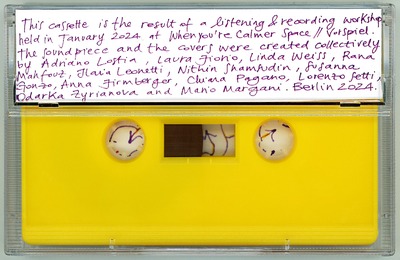 This cassette is the result of a listening & recording workshop
held in January 2024 at When you're Calmer Space // Vorspiel.
The sound piece and the covers were created collectively
by Adriano Lostia, Laura Fiorio, Linda Weiss, Rana
Mahfouz, Ilaria Leonetti, Nithin Shamsudin, Susanna
Gonzo, Anna Firmberger, Chiara Pagano, Lorenzo Setti,
Odarka Zyrianova and Mario Margani. Berlin 2024.